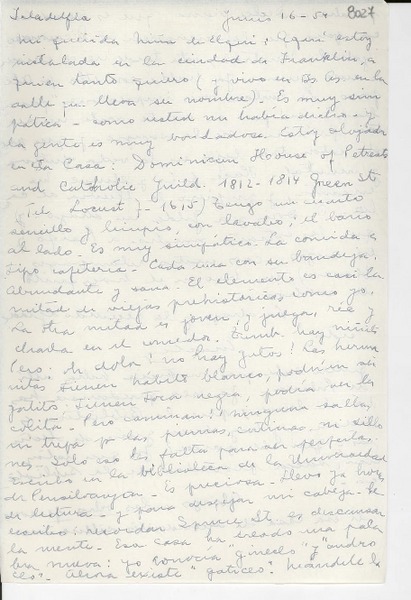 Filadelfia Junio 16-54 8027
Mi querida niña de Elqui: Aquí estoy
instalada en la ciudad de Franklin, a
quien tanto quiero (y vivo en la
calle que lleva su nombre). Es muy sim
pática - como usted me había dicho - y
la gente es muy bondadosa. Estoy alojada
en la Casa: Dominican House of Retreats
and Catholic Guild. 1812-1814 Green St
(tel. Locust 7-1615) Tengo un cuarto
sencillo y limpio, con lavabo; el baño
al lado. Es muy simpático. La comida a
tipo cafetería. Cada una con su bandeja.
Abundante y sana. El elemento es casi la
mitad de viejas prehistóricas, como yo.
La otra mitad es joven y juega, ríe y
charla en el comedor. hay niñitos
Pero ¡oh dolor! no hay gatos! Las herma
nitas tienen hábito blanco, podrían ser
gatitos. Tienen toca negra, podría ser la
colita. Pero caminan! ninguna salta,
ni trepa por las piernas, cortinas, ni sillo
nes. Sólo eso les falta para ser perfectas.
Escribo en la biblioteca de la Universidad
de Pensilvania. Es preciosa. Llevo ya horas
de lectura - y para despejar mi cabeza - le
escribo: recordar Spruce St. es descansar
la mente. Esa casa ha creado una pala
bra nueva: yo conocía "gineceo" y "andro
ceo". Ahora existe "gaticeo". Mándele la